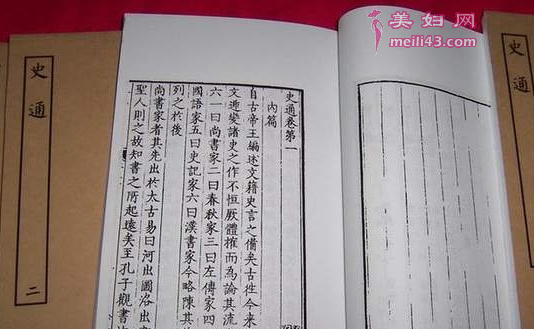 美妇网
meili43.com
史通
史通卷第一
內篇
自古帝王編述文籍史言之備矣古往今來
文遞變諸史之作不恒厥體榷而為論其流
六一曰尚書家二曰春秋家三曰左傳家四
國語家五曰史記家六曰漢書家今略陳其
列之於後
尚書家者其先出於太古易曰河出圖洛出
聖人則之故知書之所起遠矣至孔子觀書
史通
二